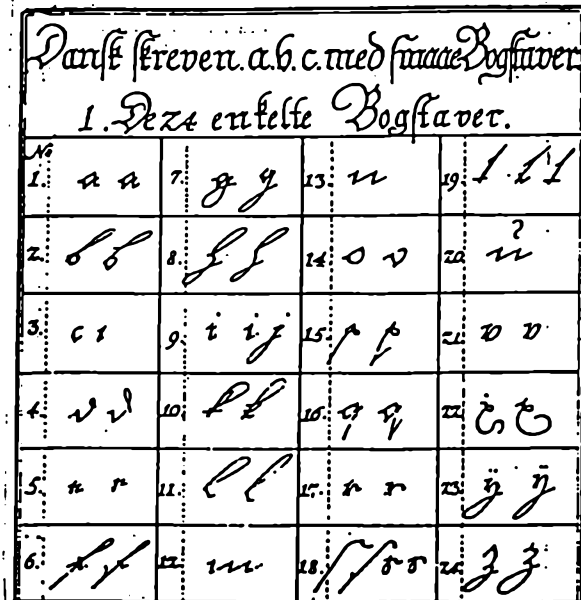 Dansk skreven. a. b. c. med smaae Bogstaver
1. De 24 enkelte Bogstaver.
No
1. a a 7. g g 13. n 19. t t t
2. b b 8. h h 14 o o 20 u
3. c c 9. i i j 15. p p 21 v v
4. d d 10. k k 16. q q 22. x x
5. e e 11. l l 17. r r 23 ÿ ÿ
6. f f 12. m 18. ſ ſ s s 24. z z